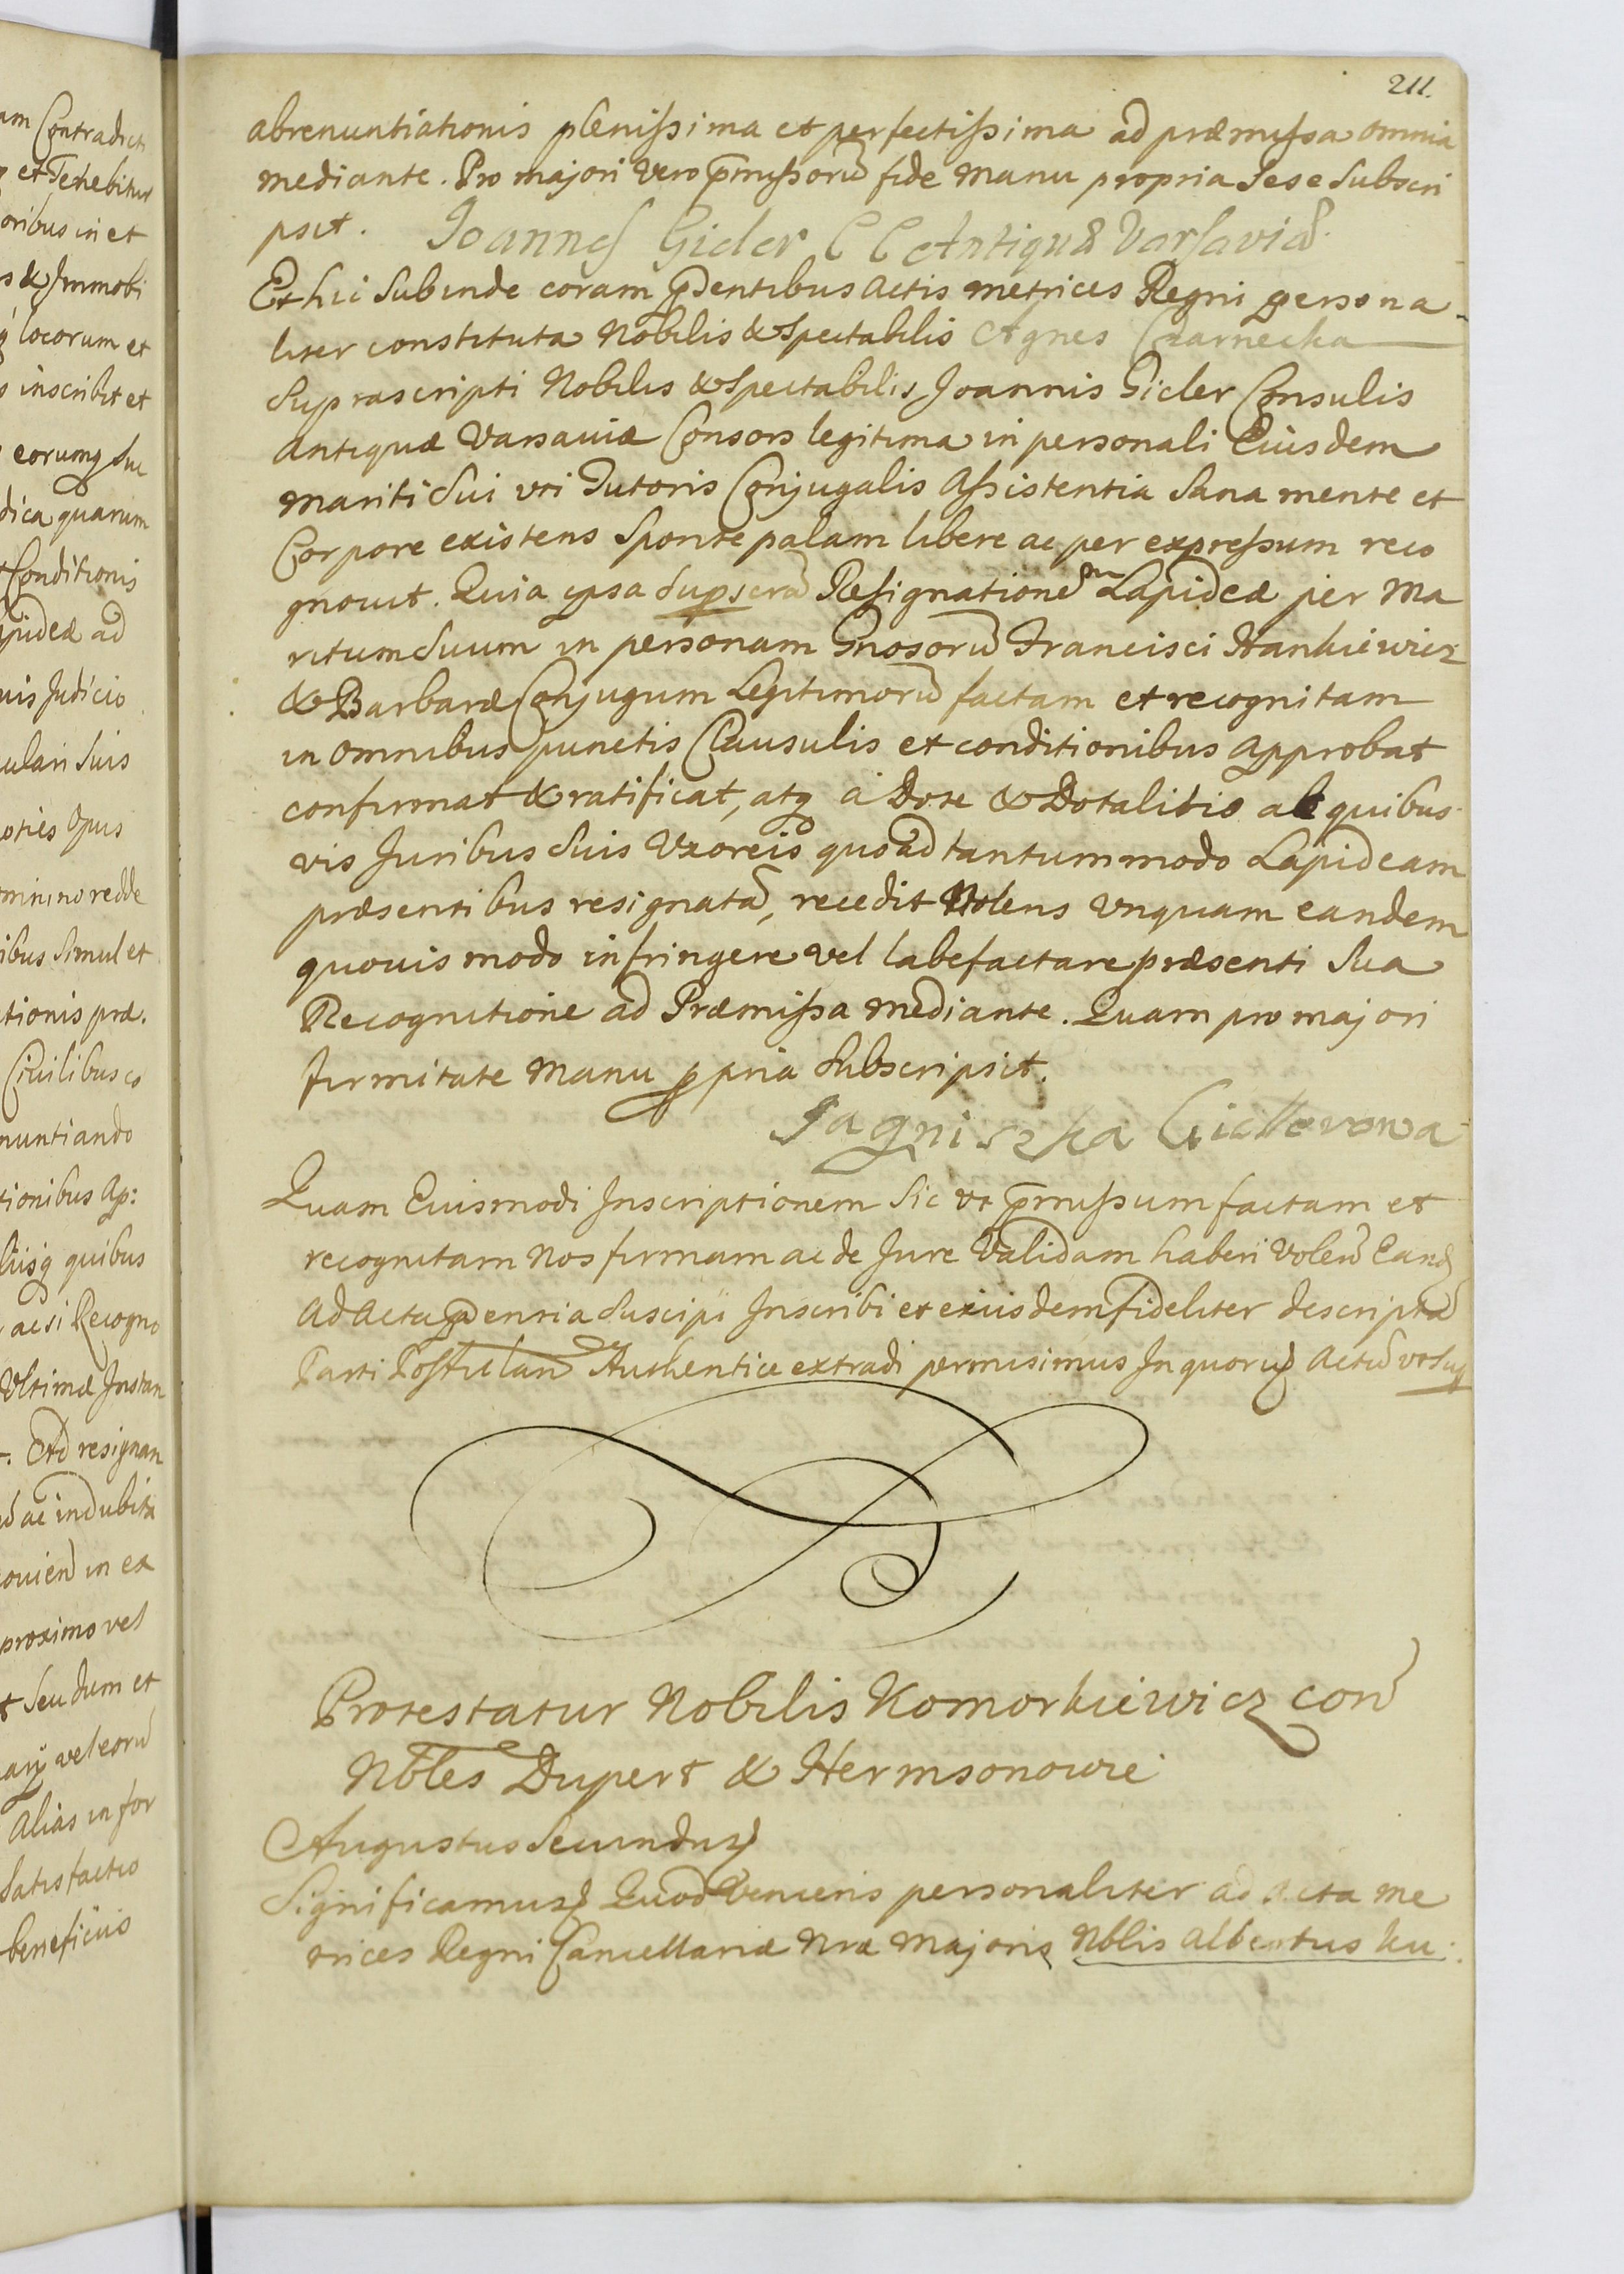 am Contradict
et Tenebitur
oribus in et
s & Immobi
locorum et
s inscribit et
eorumq Su
dica quarum
Conditionis
apideæ ad
uis Judicio
ulari Suis
oties Opus
minino redde
ibus Simul et
tionis præ.
Civilibus co
nuntiando
tionibus Ap:
lusq quibus
ac si Recogno
Ultimæ Instan
Ad resignan
ac indubita
ouien in ex
proximo vel
t seu dum et
vel eoru
Alias in for
Satisfactio
beneficiis
211.
abrenuntiationis plenissima et perfectissima ad præmissa omnia
mediante. Pro majori vero pmissoru fide Manu propria Sese Subscri
psit. Joannes Gidler C C Antiquæ Varsaviæ
Et hic Subinde coram pdentibus Actis metrices Regni persona
liter constituta Nobilis & Spectabilis Agnes Czarnecka
Suprascripti Nobilis & Spectabilis Joannis Gidler Consulis
Antiquæ Varsaviæ Consors legitima in personali Eiusdem
mariti Sui uti Tutoris Conjugalis Assistentia Sana mente et
Corpore existens Sponte palam libere ac per expressum reco
gnouit. Quia ipsa Supscra Resignationem Lapideæ per Ma
ritum Suum in personam Gnosoru Francisci Hankiewicz
& Barbaræ Conjugum Legitimoru factam et recognitam
in omnibus punctis Clausulis et conditionibus Approbat
confirmat & ratificat, atq à Dote & Dotalitio ab quibus
vis Juribus Suis Uxoreis quoad tantummodo Lapideam
præsentibus resignata, recedit Nolens unquam eandem
quouis modo infringere vel labefactare præsenti Sua
Recognitione ad Præmissa mediante. Quam pro majori
firmitate Manu ppria Subscripsit.
Jagniszka Gidlerowa
Quam Euismodi Inscriptionem Sic ut pmissum factam et
recognitam Nos firmam ac de Jure Validam haberi Volen Eand
Ad Acta pdentia Suscipi Inscribi et eiusdem fideliter descripta
Parti Postulan Authentice extradi permisimus In quoru Actu ut Sup
Protestatur Nobilis Komorkiewicz con
Nobles Dupert & Hermsonowie
Augustus Secundus
Significamus Quod Veniens personaliter ad Acta me
trices Regni Cancellariæ Nræ Majoris Nblis Albertus Ku: